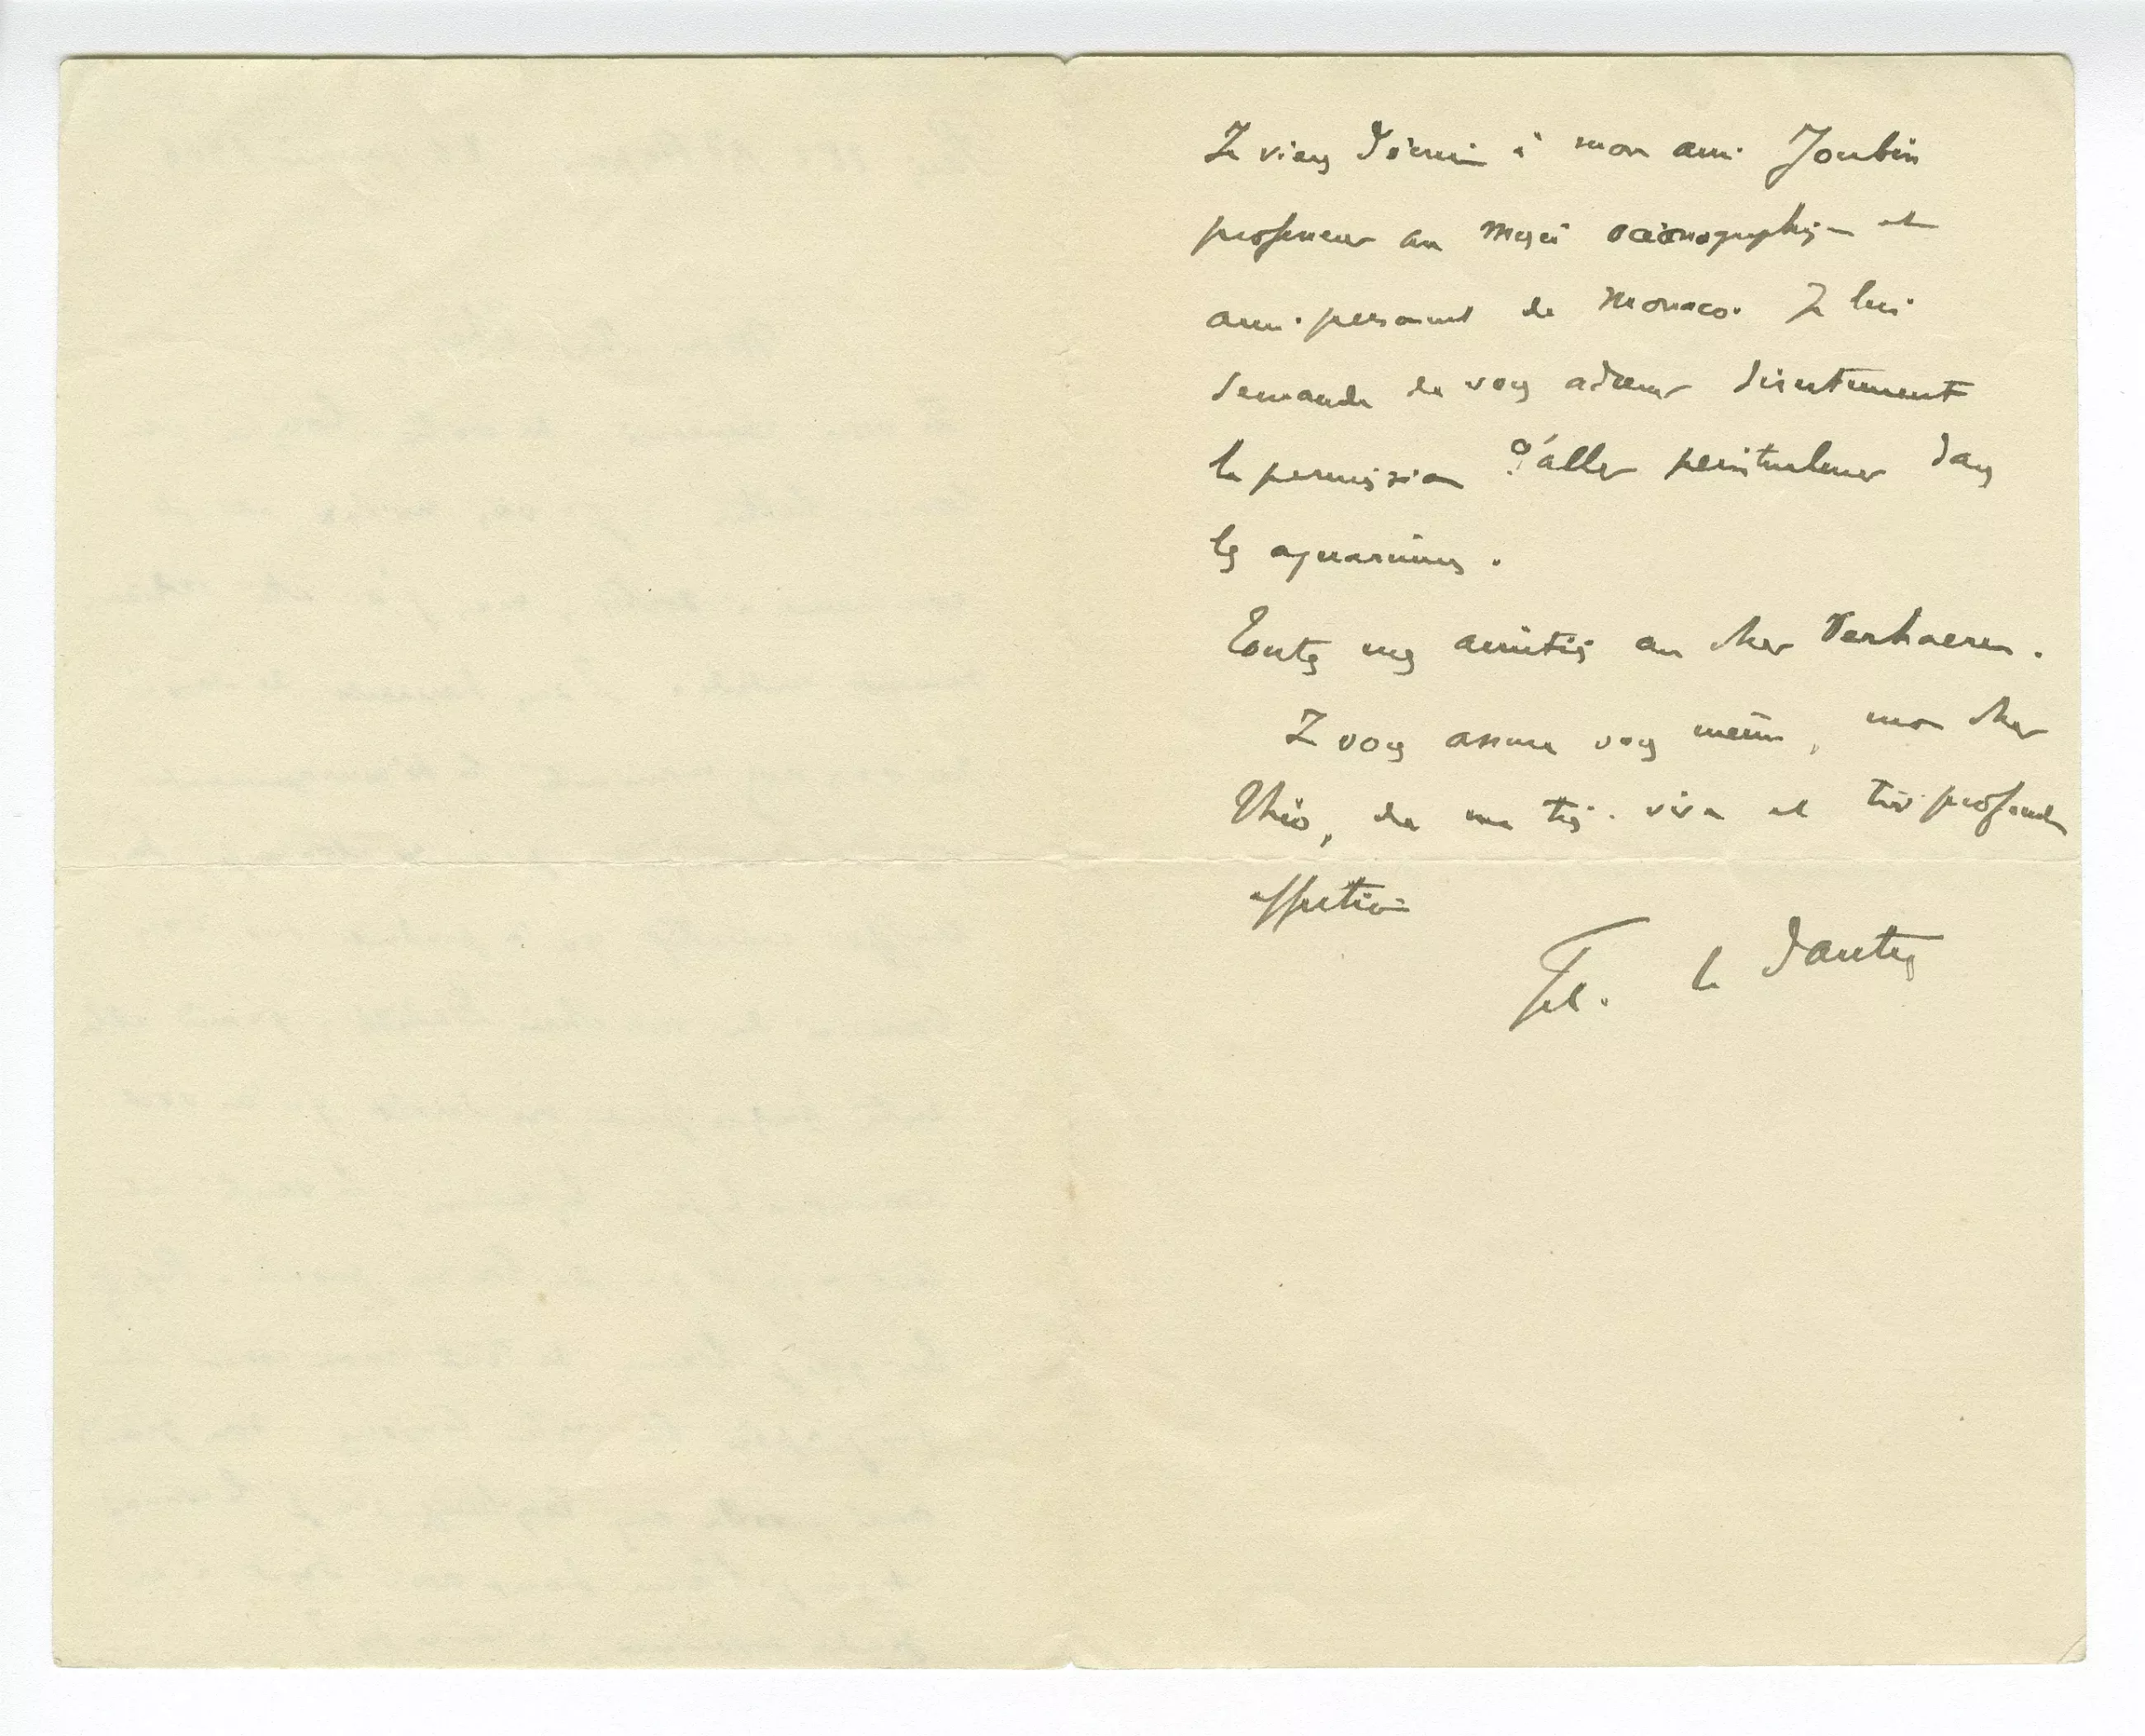 Je viens d'écrire à mon ami Joubin
professeur au musée océanographique et
ami personnel de Monaco. Je lui
demande de vous adresser directement
la permission d'aller peinturlurer dans
les aquariums.
Toutes mes amitiés au cher Verhaeren.
Je vous assure vous même, mon cher
Théo, de ma très vive et très profonde
affection
Fel. le Dantec